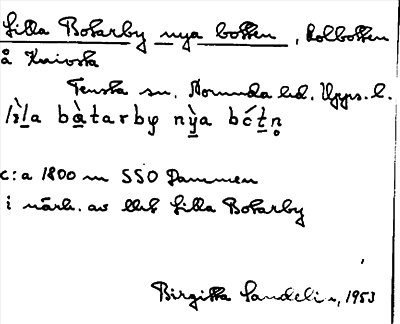 Lilla Botarby nya botten, Kolbotten
å Knivsta
Tensta sn. Norunda hd. Upps. l.
lìla bàtarby nỳa bótn̥
c:a 1800 m SSO Dammen
i närh. av ebl Lilla Botarby
Birgitta Sandelin, 1953